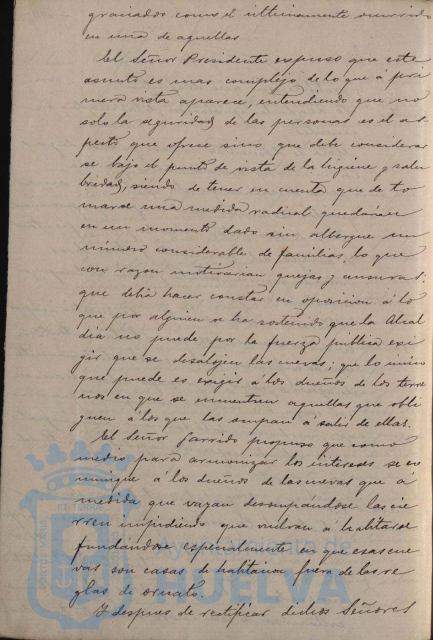 graciados como el ultimamente ocurrido
en una de aquellas
El Señor Presidente expuso que este
asunto es mas complejo de lo que á pri
mera vista aparece, entendiendo que no
solo la seguridad de las personas es el as-
pecto que ofrece sino que debe considerar
se bajo el punto de vista de la higiene y salu
bridad, siendo de tener en cuenta que de to
marse una medida radical quedarian
en un momento dado sin albergue un
número considerable de familias, lo que
con razon motivarian quejas y censuras:
que debia hacer constar en oposicion á lo
que por alguien se ha sostenido que la Alcal
dia no puede por la fuerza publica exi
gir que se desalojen las cuevas; que lo unico
que puede es exigir á los dueños de los terre
nos en que se encuentren aquellas que obli
guen á los que las ocupan á salir de ellas.
El Señor Garrido propuso que como
medio para armonizar los intereses se co
munique á los dueños de las cuevas que á
medida que vayan desocupándose las cie
rren impidiendo que vuelvan á habitarse
fundándose especialmente en que esas cue
vas son casas de habitacion fuera de las re
glas de ornato.
Y despues de rectificar dichos Señores
HUELVA